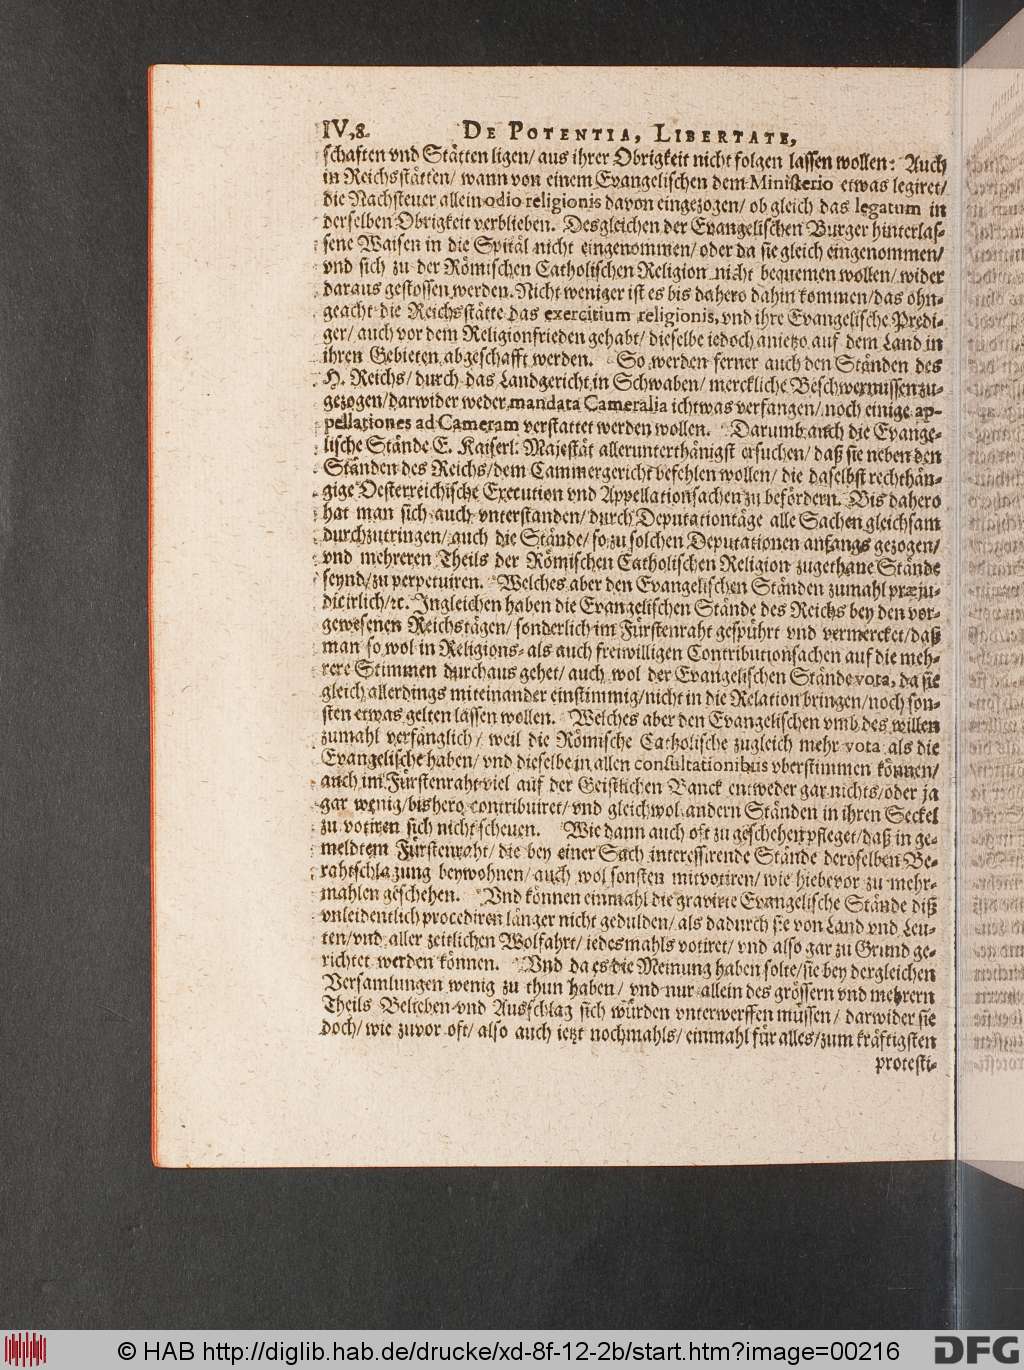 IV, 8. DE POTENTIA, LIBERTATE,
schaften vnd Stätten ligen/ aus ihrer Obrigkeit nicht folgen lassen wollen: Auch
in Reichsstätten/ wann von einem Evangelischen dem Ministerio etwas legiret/
die Nachsteuer allein odio religionis davon eingezogen/ ob gleich das legatum in
derselben Obrigkeit verblieben. Desgleichen der Evangelischen Burger hinterlas-
sene Waisen in die Spitäl nicht eingenommen/ oder da sie gleich eingenommen/
vnd sich zu der Römischen Catholischen Religion nicht bequemen wollen/ wider
daraus gestossen werden. Nicht weniger ist es bis dahero dahin kommen/ das ohn-
geacht die Reichsstätte das exercitium religionis, vnd ihre Evangelische Predi-
ger/ auch vor dem Religionfrieden gehabt/ dieselbe iedoch anietzo auf dem Land in
ihren Gebieten abgeschafft werden. So werden ferner auch den Ständen des
H. Reichs/ durch das Landgericht in Schwaben/ merckliche Beschwernussen zu-
gezogen/ darwider weder mandata Cameralia ichtwas verfangen/ noch einige ap-
pellationes ad Cameram verstattet werden wollen. Darumb auch die Evange-
lische Stände E. Kaiserl. Majestät allerunterthänigst ersuchen/ daß sie neben den
Ständen des Reichs/ dem Cammergericht befehlen wollen/ die daselbst rechthän-
gige Oesterreichische Execution vnd Appellationsachen zu befördern. Bis dahero
hat man sich auch vnterstanden/ durch Deputationtäge alle Sachen gleichsam
durchzutringen/ auch die Stände/ so zu solchen Deputationen anfangs gezogen/
vnd mehreren Theils der Römischen Catholischen Religion zugethane Stände
seynd/ zu perpetuiren. Welches aber den Evangelischen Ständen zumahl præju-
dicirlich/ ꝛc. Ingleichen haben die Evangelischen Stände des Reichs bey den vor-
gewesenen Reichstägen/ sonderlich im Fürstenraht gespührt vnd vermercket/ daß
man so wol in Religions- als auch freiwilligen Contributionsachen auf die meh-
rere Stimmen durchaus gehet/ auch wol der Evangelischen Stände vota, da sie
gleich allerdings miteinander einstimmig/ nicht in die Relation bringen/ noch son-
sten etwas gelten lassen wollen. Welches aber den Evangelischen vmb des willen
zumahl verfänglich/ weil die Römische Catholische zugleich mehr vota als die
Evangelische haben/ vnd dieselbe in allen consultationibus vberstimmen können/
auch im Fürstenraht viel auf der Geistlichen Banck entweder gar nichts/ oder ja
gar wenig/ bishero contribuiret/ vnd gleichwol andern Ständen in ihren Seckel
zu votiren sich nicht scheuen. Wie dann auch oft zu geschehen pfleget/ daß in ge-
meldtem Fürstenraht/ die bey einer Sach interessirende Stände deroselben Be-
rahtschlagung beywohnen/ auch wol sonsten mitvotiren/ wie hiebevor zu mehr-
mahlen geschehen. Vnd können einmahl die gravirte Evangelische Stände diß
vnleidentlich procediren länger nicht gedulden/ als dadurch sie von Land vnd Leu-
ten/ vnd aller zeitlichen Wolfahrt/ iedesmahls votiret/ vnd also gar zu Grund ge-
richtet werden können. Vnd da es die Meinung haben solte/ sie bey dergleichen
Versamlungen wenig zu thun haben/ vnd nur allein des grössern vnd mehrern
Theils Belieben vnd Ausschlag sich würden vnterwerffen müssen/ darwider sie
doch/ wie zuvor oft/ also auch ietzt nochmahls/ einmahl für alles/ zum kräftigsten
protesti-
© HAB http://diglib.hab.de/drucke/xd-8f-12-2b/start.htm?image=00216
DFG